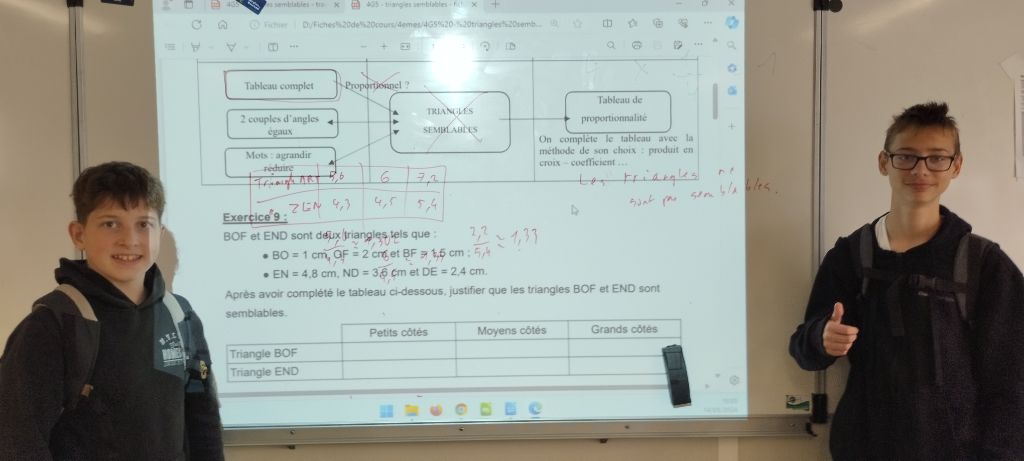 4G5 - triangles semblables - fich
Fichier
D:/Fiches%20de%20cours/4emes/4G5%20-%20triangles%20semb...
Tableau complet
Proportionnel ?
2 couples d'angles
égaux
Mots : agrandir
réduire
TRIANGLES
SEMBLABLES
Tableau de
proportionnalité
On complète le tableau avec la
méthode de son choix : produit en
croix – coefficient ...
6 7,2
ZEN 4,3 4,5 5,4
Les triangles ne
sont pas semblables.
Exercice 9 :
BOF et END sont deux triangles tels que :
● BO = 1 cm, OF = 2 cm et BF = 1,5 cm ;
● EN = 4,8 cm, ND = 3,6 cm et DE = 2,4 cm.
≈ 1,302
7,2/5,4 ≈ 1,33
Après avoir complété le tableau ci-dessous, justifier que les triangles BOF et END sont
semblables.
Petits côtés Moyens côtés Grands côtés
Triangle BOF
Triangle END